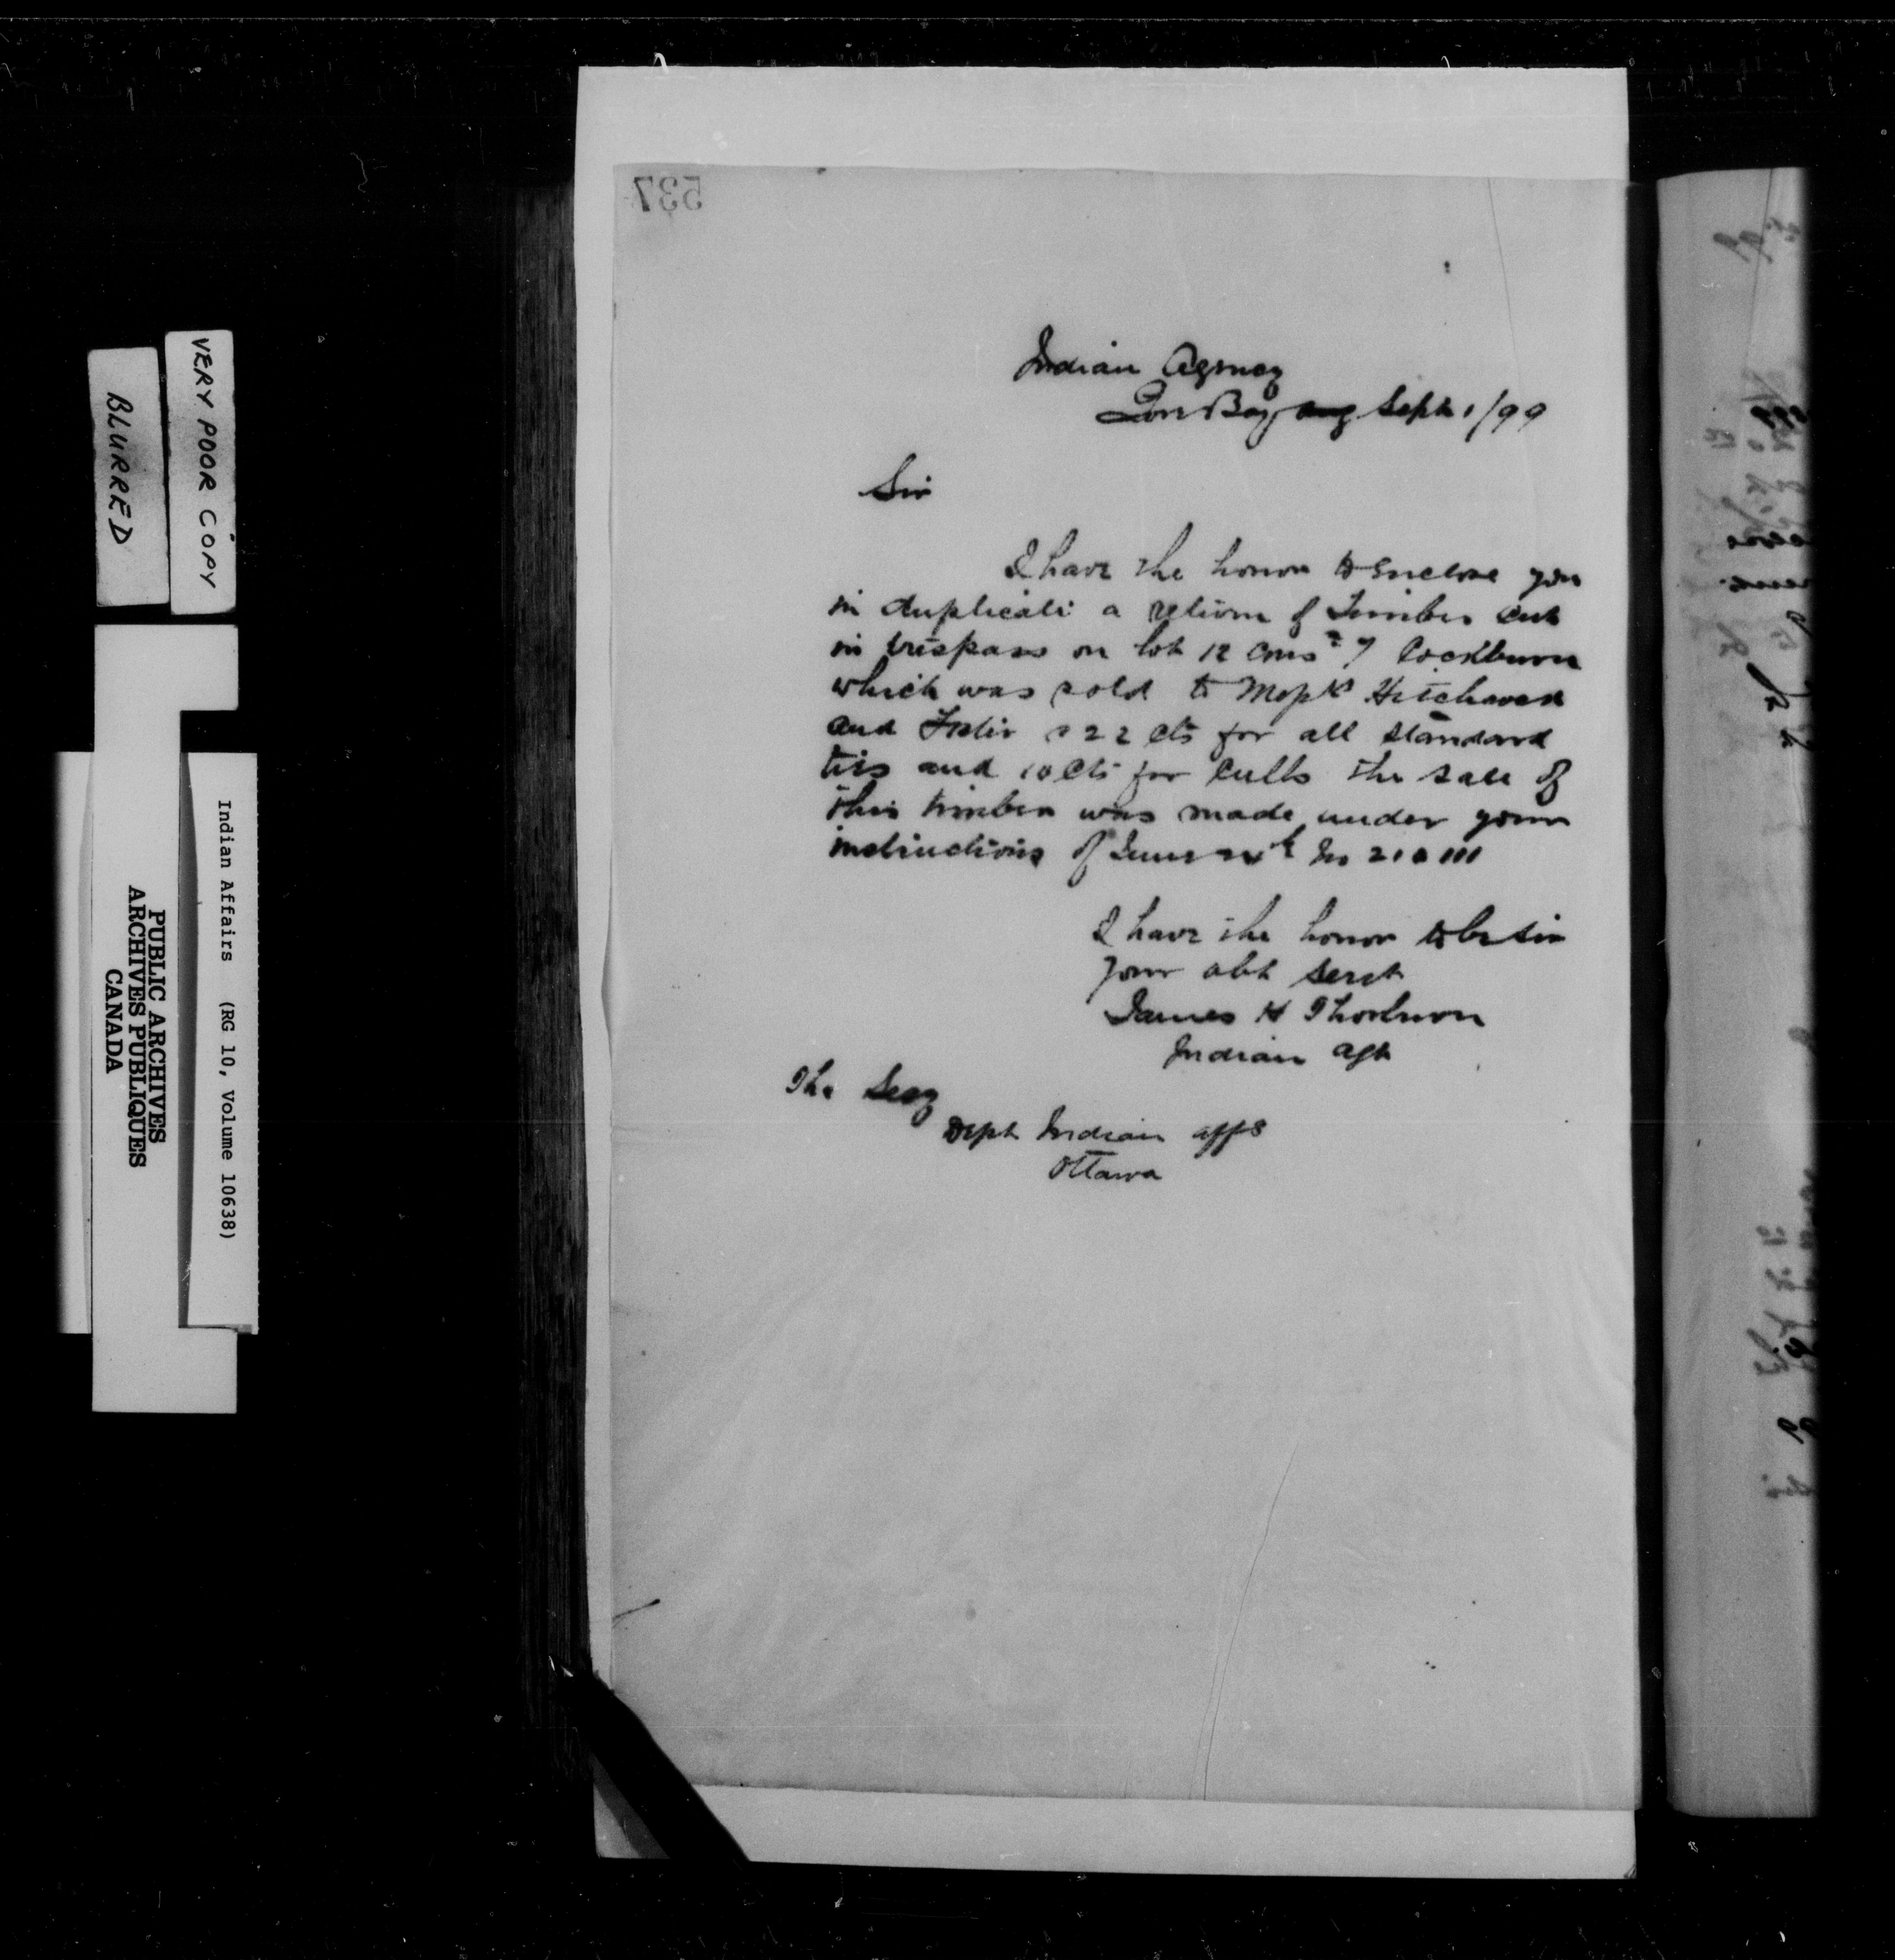 537
Indian Agency
Gore Bay Aug Sept 1/99
Sir
I have the honor to enclose you
in duplicate a return of Timber cut
in trespass on lot 12 Cons 7 Cockburn
which was sold to Messrs
and 22 cts for all standard
ties and 10 cts for culls the sale of
this timber was made under your
instructions of June No
I have the honor to be sir
your obt servt
James H Thorburn
Indian agt
The Secy
Dept Indian affs
Ottawa
VERY POOR COPY
BLURRED
Indian Affairs (RG 10, Volume 10638)
PUBLIC ARCHIVES
ARCHIVES PUBLIQUES
CANADA